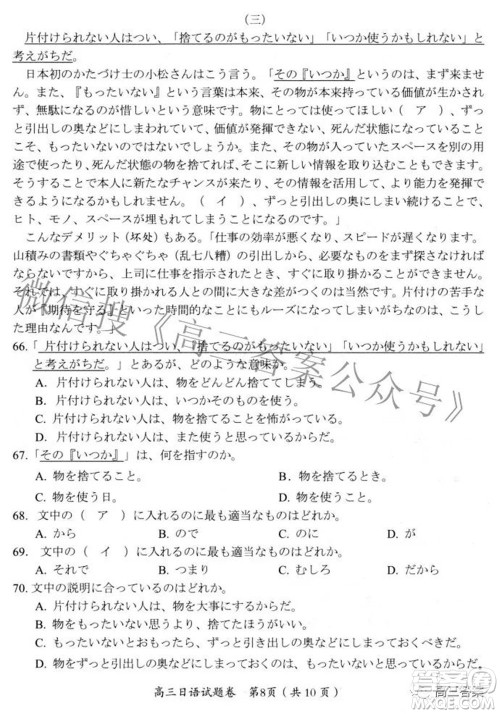 （三）
片付けられない人はつい、「捨てるのがもったいない」「いつか使うかもしれない」と
考えがちだ。
日本初のかたづけ士の小松さんはこう言う。「その『いつか』というのは、まず来ませ
ん。また、『もったいない』という言葉は本来、その物が本来持っている価値が生かされ
ず、無駄になるのが惜しいという意味です。物にとっては使ってほしい（　ア　）、ずっ
と引出しの奥などにしまわれていて、価値が発揮できない、死んだ状態になっていること
こそ、もったいないのではないでしょうか。また、その物が入っていたスペースを別の用
途で使ったり、死んだ状態の物を捨てれば、そこに新しい情報を取り込むこともできます。
そうすることで本人に新たなチャンスが来たり、その情報を活用して、よりよい仕事がで
きる可能性も広がります。（　イ　）、ずっと引き出しの奥にしまい続けることで、
ヒト、モノ、スペースが埋もれてしまうわけです。」
こんなデメリット（坏处）もある。「仕事の効率が悪くなり、スピードが遅くなります。
山積みの書類やぐちゃぐちゃ（乱七八糟）の引出しから、必要なものをまず探さなくては
ならないですから、上司に仕事を指示されたとき、すぐに取り掛かることができません。
それでは、すぐに取り掛かれる人と大きな差がつくのは当然です。片付けの苦手な
人が『期待を守る』といった時間的なことにもルーズになってしまいがちなのは、こうし
た理由なんです。」
66.「片付けられない人はつい、「捨てるのがもったいない」「いつか使うかもしれない」
と考えがちだ。」とあるが、どのような意味か。
A. 片付けられない人は、物をどんどん捨ててしまう。
B. 片付けられない人は、いつかそのものを使う。
C. 片付けられない人は、物を捨てることを怖がっている。
D. 片付けられない人は、また使うと思って、なかなか物を捨てない。
67.「その『いつか』」は、何を指すのか。
A. 物を捨てること。
B. 物を捨てるとき。
C. 物を使う日。
D. 物を使うこと。
68. 文中の（　ア　）に入れるのに最も適当なものはどれか。
A. から
B. ので
C. のに
D. が
69. 文中の（　イ　）に入れるのに最も適当なものはどれか。
A. それで
B. つまり
C. むしろ
D. だから
70. 文中の説明に合っているのはどれか。
A. 片付けられない人は、物を大事にするからだ。
B. もったいないと思ったら、使ったほうがいい。
C. もったいないとおもったら、ずっと引き出しの奥などにしまっておくべきだ。
D. もったいないと思っても、ずっと引き出しの奥などにしまっておいたほうがいい。
高三日语试题卷　第8页（共10页）
微信搜《高三答案公众号》
高三答案